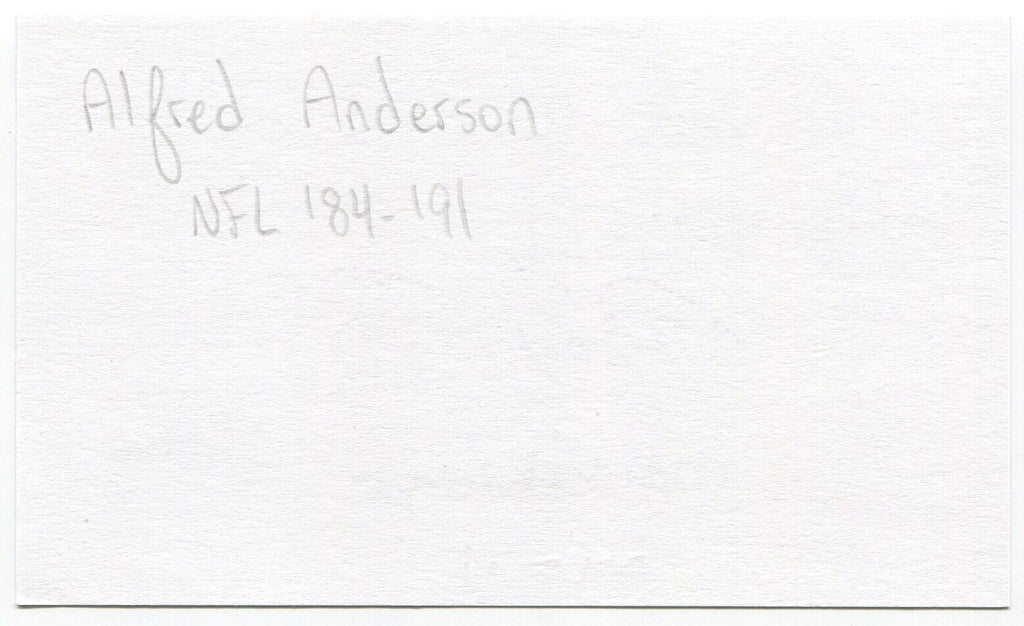 Alfred Anderson
NFL '84-'91